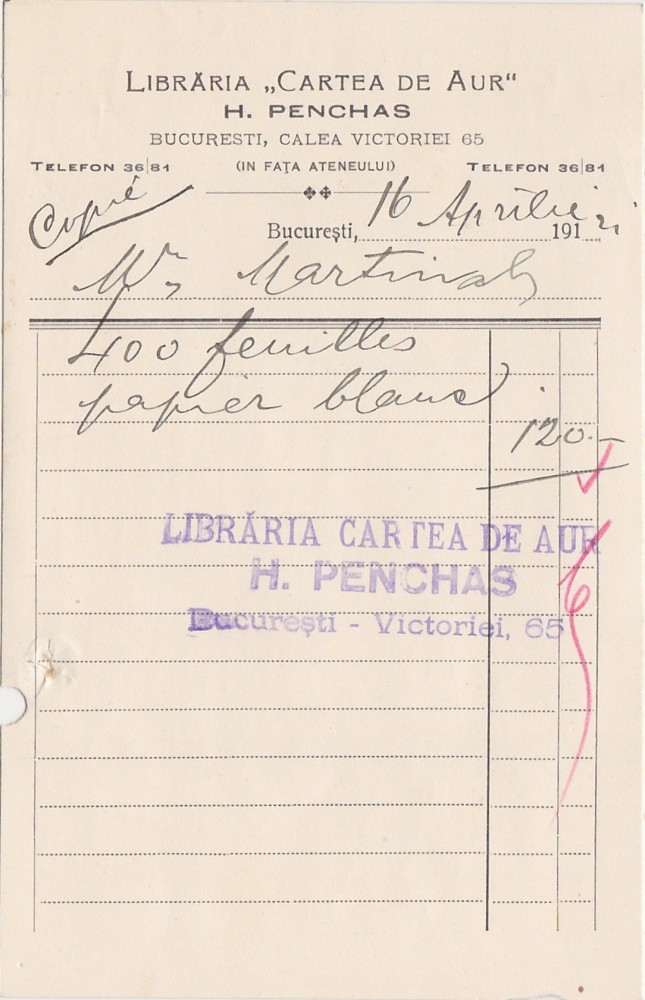 LIBRĂRIA „CARTEA DE AUR"
H. PENCHAS
BUCURESTI, CALEA VICTORIEI 65
TELEFON 36|81 (IN FAȚA ATENEULUI) TELEFON 36|81
Copié
București, 16 Aprilie 191
Mr Martinal
400 feuilles
papier blanc
120.—
LIBRĂRIA CARTEA DE AUR
H. PENCHAS
București - Victoriei, 65